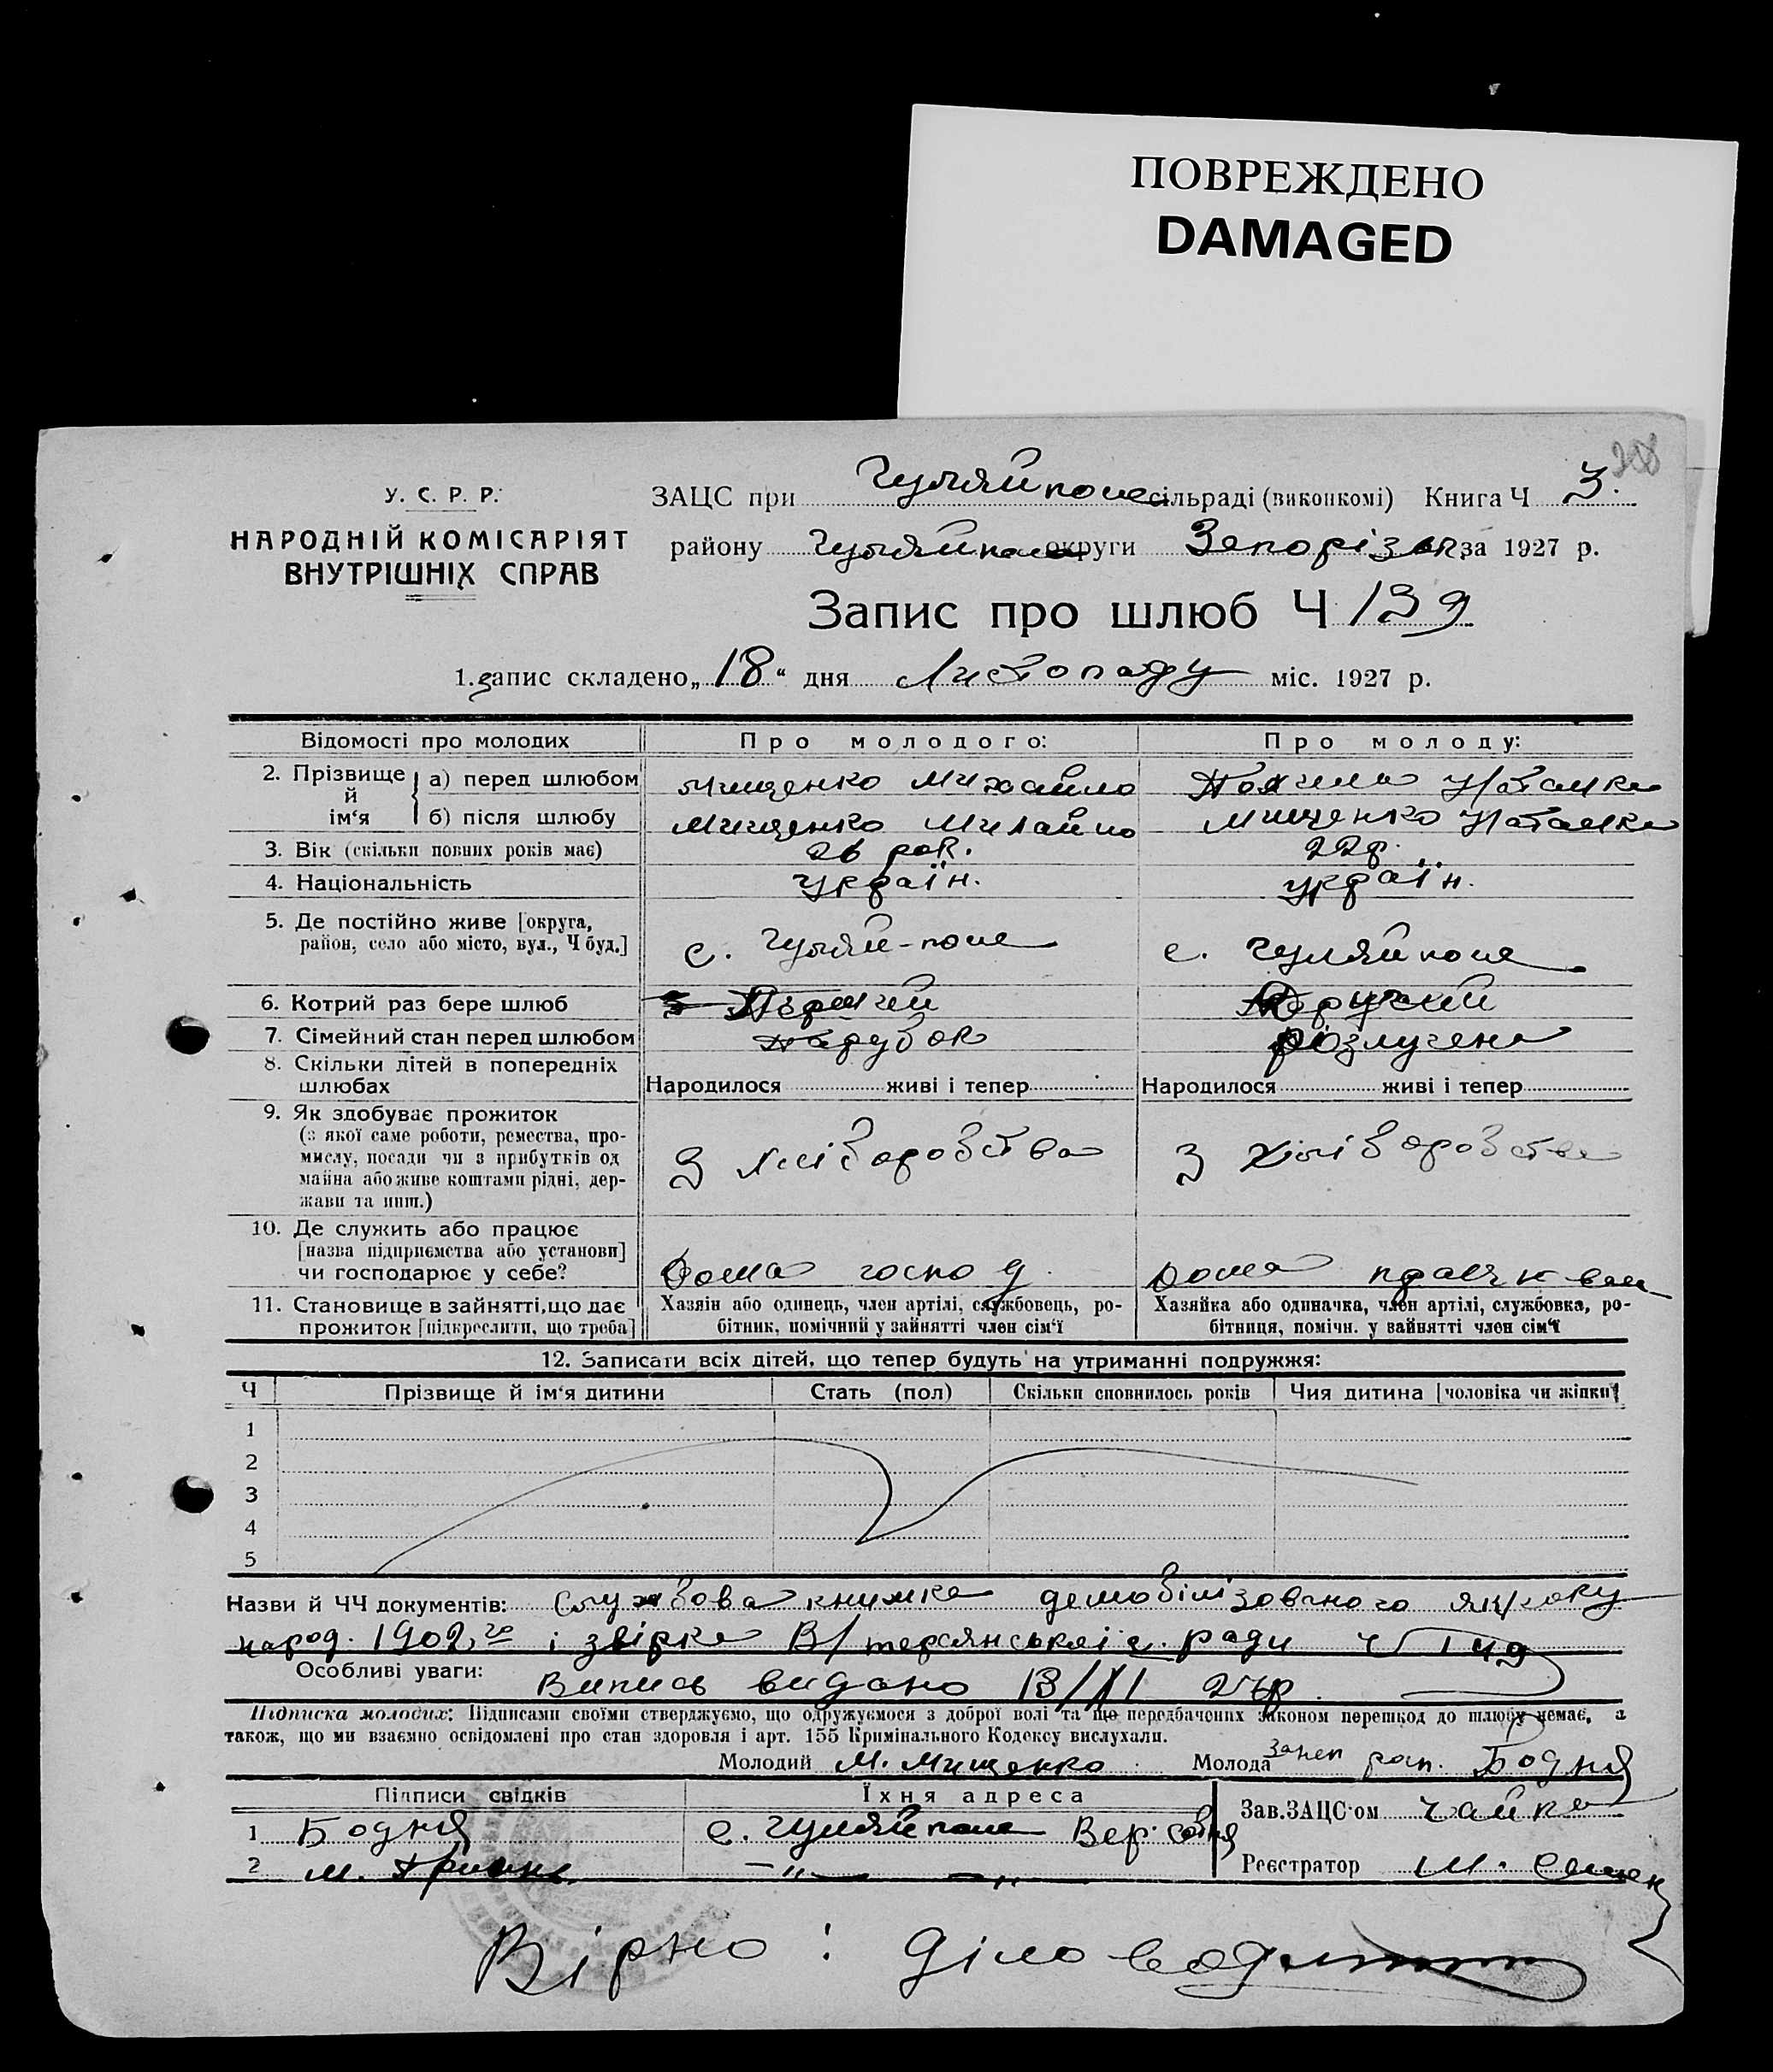 ПОВРЕЖДЕНО
DAMAGED
У. С. Р. Р.
НАРОДНІЙ КОМІСАРІЯТ
ВНУТРІШНІХ СПРАВ
ЗАЦС при Гуляйполе сільраді (виконкомі) Книга Ч 3.
району Гуляйполе округи Запорізьк. за 1927 р.
Запис про шлюб Ч 139
1. запис складено „18“ дня Листопаду міс. 1927 р.
Відомості про молодих Про молодого: Про молоду:
2. Прізвище й ім‘я а) перед шлюбом Мищенко Михайло Наталка
б) після шлюбу Мищенко Михайло Мищенко Наталка
3. Вік (скільки повних років має) 26 рок. 22 р.
4. Національність україн. україн.
5. Де постійно живе [округа,
район, село або місто, вул., Ч буд.] с. Гуляй-поле с. Гуляйполе
6. Котрий раз бере шлюб Перший
7. Сімейний стан перед шлюбом Парубок розлучена
8. Скільки дітей в попередніх
шлюбах Народилося живі і тепер Народилося живі і тепер
9. Як здобуває прожиток
(з якої саме роботи, ремества, про-
мислу, посади чи з прибутків од
майна або живе коштами рідні, дер-
жави та инш.) З хліборобства З хліборобства
10. Де служить або працює
[назва підприємства або установи]
чи господарює у себе? Дома господ. Дома
11. Становище в зайнятті, що дає Хазяін або одинець, член артілі, службовець, ро- Хазяйка або одиначка, член артілі, службовка, ро-
прожиток [підкреслити, що треба] бітник, помічний у зайнятті член сім‘ї бітниця, помічн. у зайнятті член сім‘ї
12. Записати всіх дітей, що тепер будуть на утриманні подружжя:
Ч Прізвище й ім‘я дитини Стать (пол) Скільки сповнилось років Чия дитина [чоловіка чи жінки]
1
2
3
4
5
Назви й ЧЧ документів: Службова книжка демобілізованого
народ. 1902 го і звірка сл. ради ч 149
Особливі уваги: Випись видано
Підписка молодих: Підписами своїми стверджуємо, що одружуємося з доброї волі та що передбачених законом перешкод до шлюбу немає, а
також, що ми взаємно освідомлені про стан здоровля і арт. 155 Кримінального Кодексу вислухали.
Молодий М. Мищенко Молода Бодня
Підписи свідків Їхня адреса Зав. ЗАЦС‘ом Чайка
1 Бодня с. Гуляйполе Вер.
2 М. –„– –„– Реєстратор М.
Вірно: Діловод